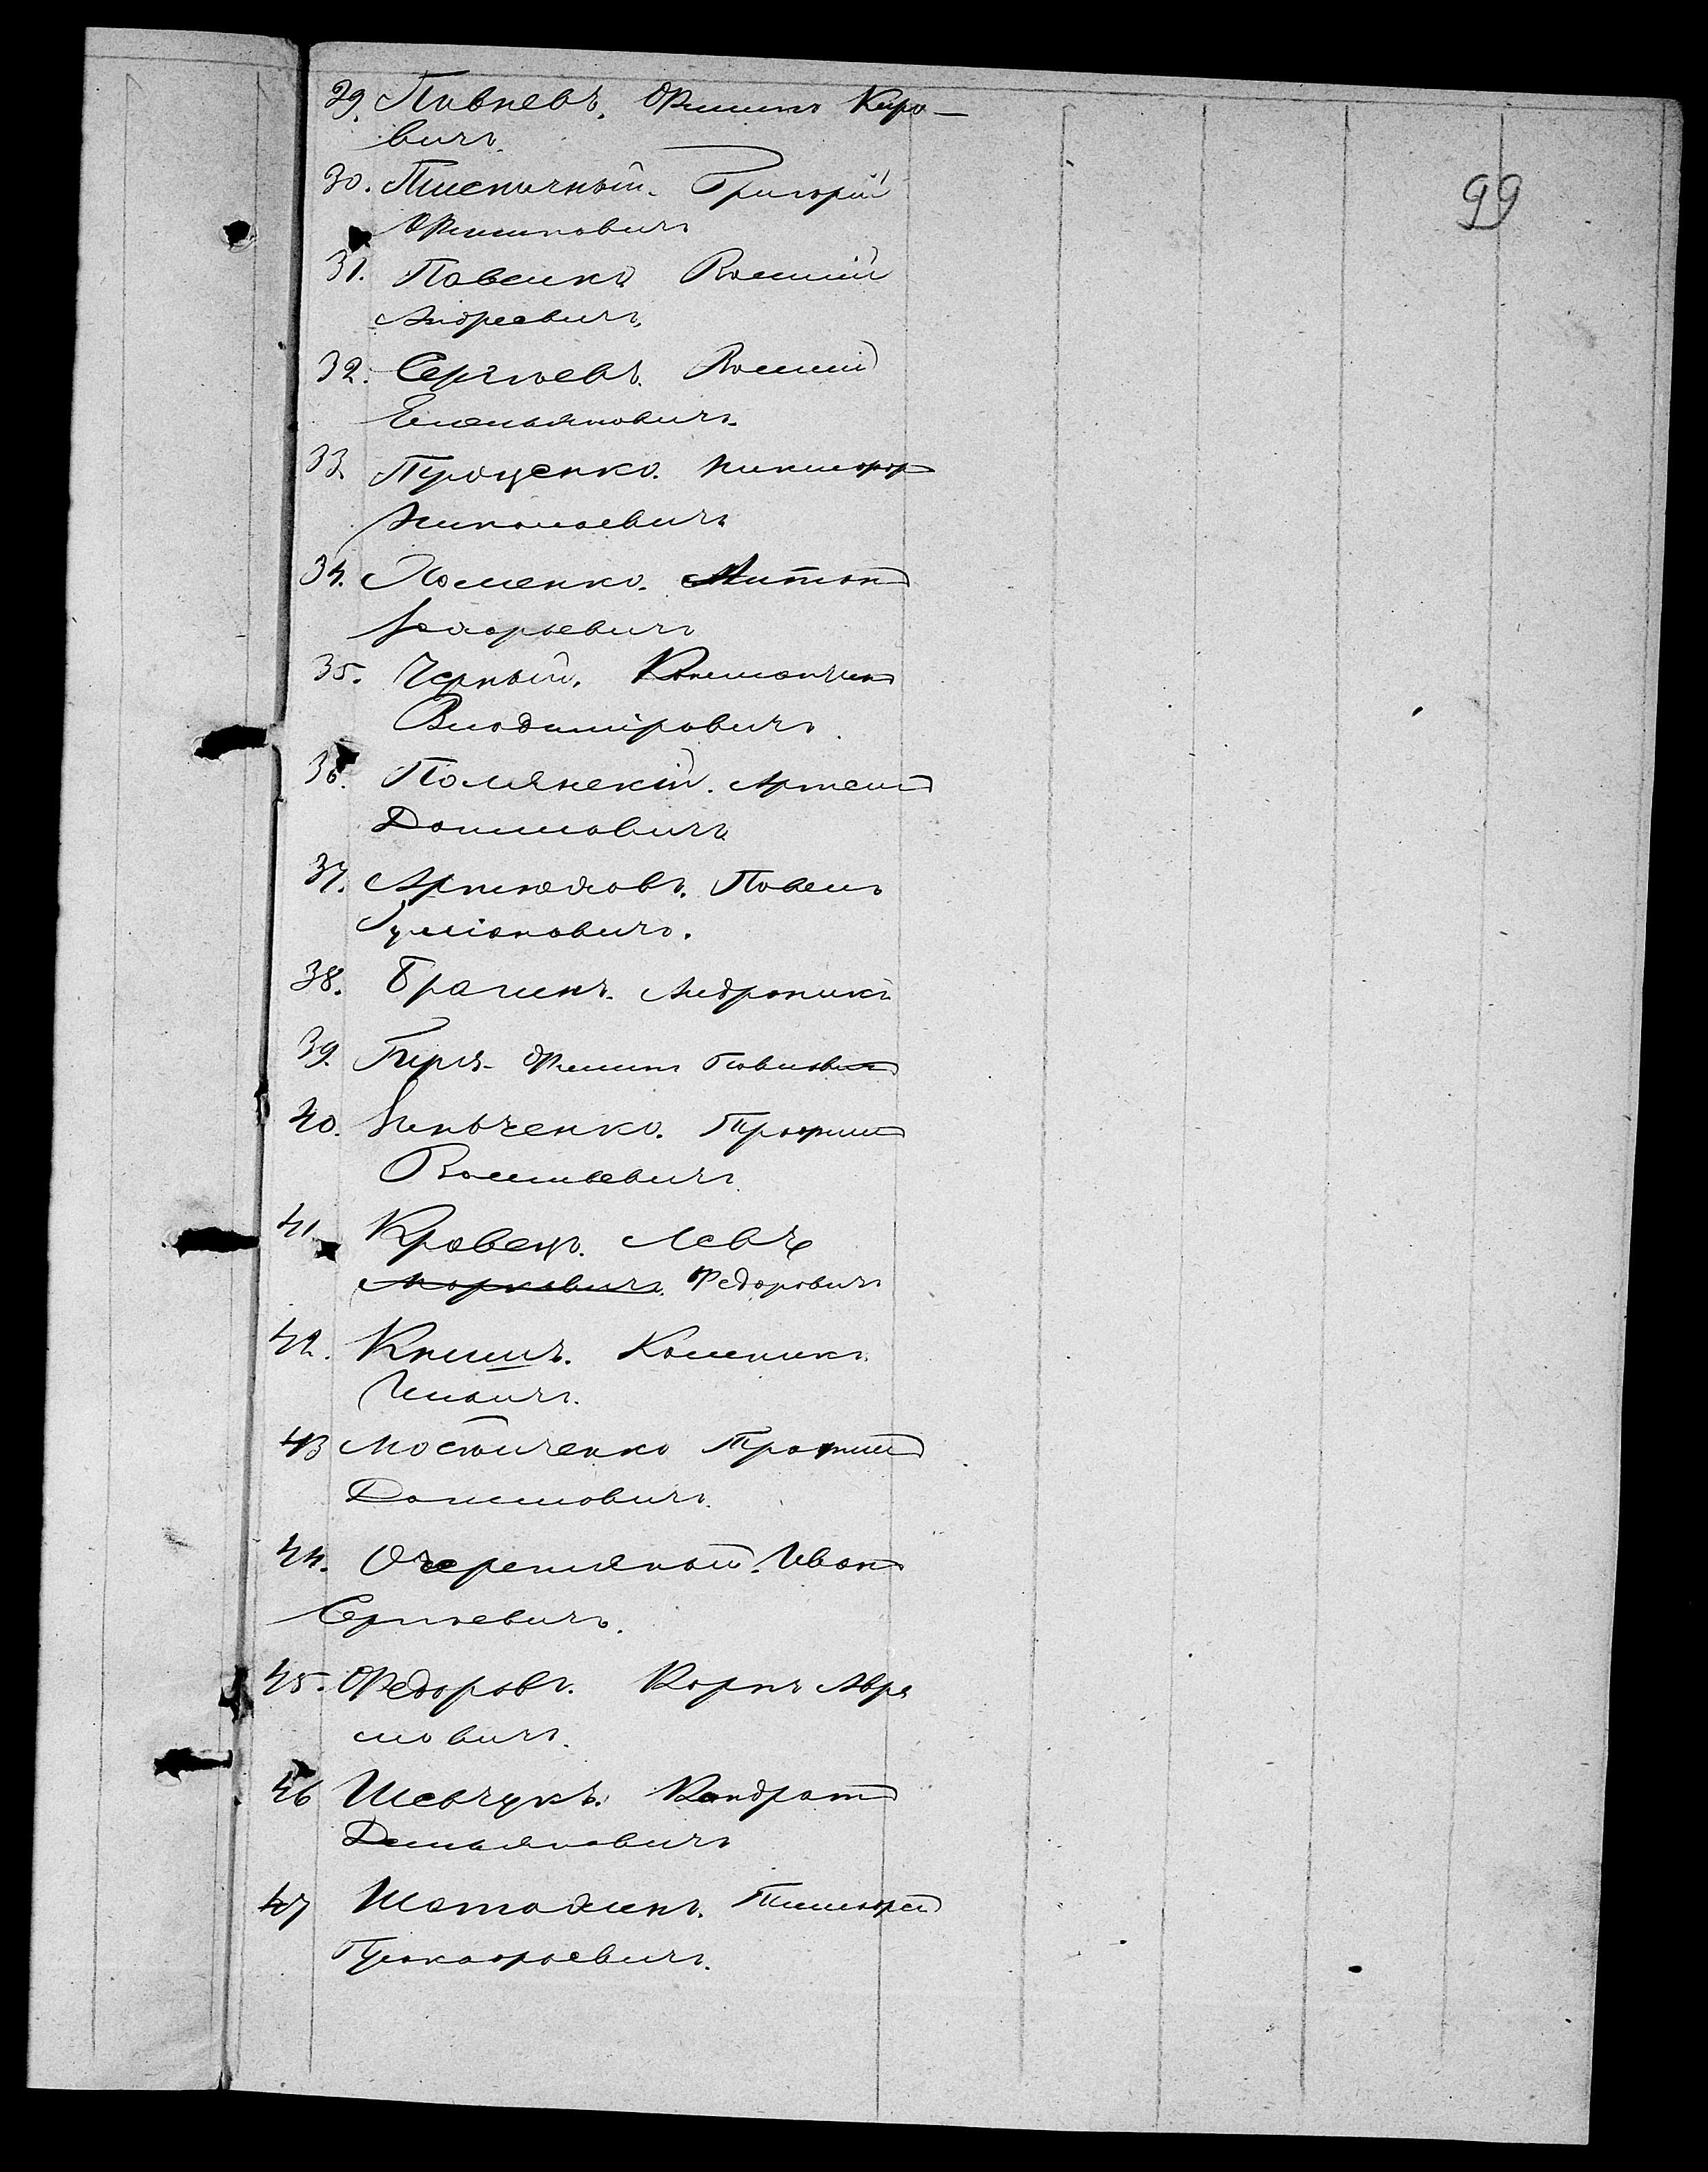 99
29. Пивневъ. Филипъ Киро-
вичъ.
30. Пшеничный. Григорій
Филиповичъ
31. Павликъ Василій
Андреевичъ
32. Сергѣевъ. Василій
Емельяновичъ.
33. Проценко. Никифоръ
Николаевичъ
34. Хоменко. Антонъ
Захарьевичъ
35. Черный. Константинъ
Владиміровичъ.
36. Полянскій. Артемъ
Даниловичъ
37. Артюховъ. Павелъ
Куліановичъ.
38. Брагинъ. Андроникъ
39. Гиря. Филипъ Павловичъ
40. Зинченко. Трофимъ
Васильевичъ
41. Кравецъ. Левъ
Марковичъ. Федоровичъ
42. Книшъ. Калиникъ
Ильичъ.
43 Мостиченко Трофимъ
Даниловичъ.
44. Очеретяный. Иванъ
Сергѣевичъ.
45. Федоровъ. Карпъ Авра
мовичъ.
46 Шевчукъ. Кондратъ
Демьяновичъ
47 Шаталинъ. Тимофей
Григорьевичъ.